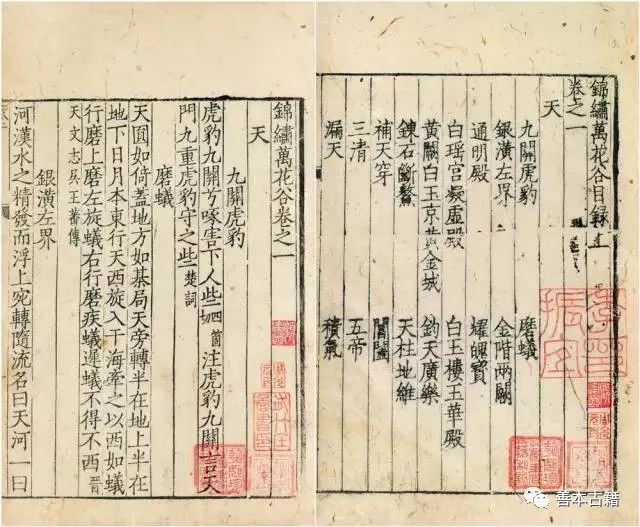 錦繡萬花谷目錄上
卷之一
天
九關虎豹　磨蟻
銀潢左界　金階兩闕
通明殿　耀魄寶
白瑶宫凝虛殿　白玉樓玉華殿
黃闕白玉京黃金城　鈞天廣樂
鍊石斷鰲　天柱地維
補天穿　閶闔
三清　五帝
漏天　積氣
錦繡萬花谷卷之一
天
九關虎豹
虎豹九關方啄害下人些四箇切注虎豹九關言天
門九重虎豹守之些楚詞
磨蟻
天圓如倚蓋地方如棊局天旁轉半在地上半在
地下日月本東行天西旋入于海牽之以西如蟻
行磨上磨左旋蟻右行磨疾蟻遲蟻不得不西晉
天文志吳王蕃傳
銀潢左界
河漢水之精發而浮上宛轉隨流名曰天河一曰
善本古籍